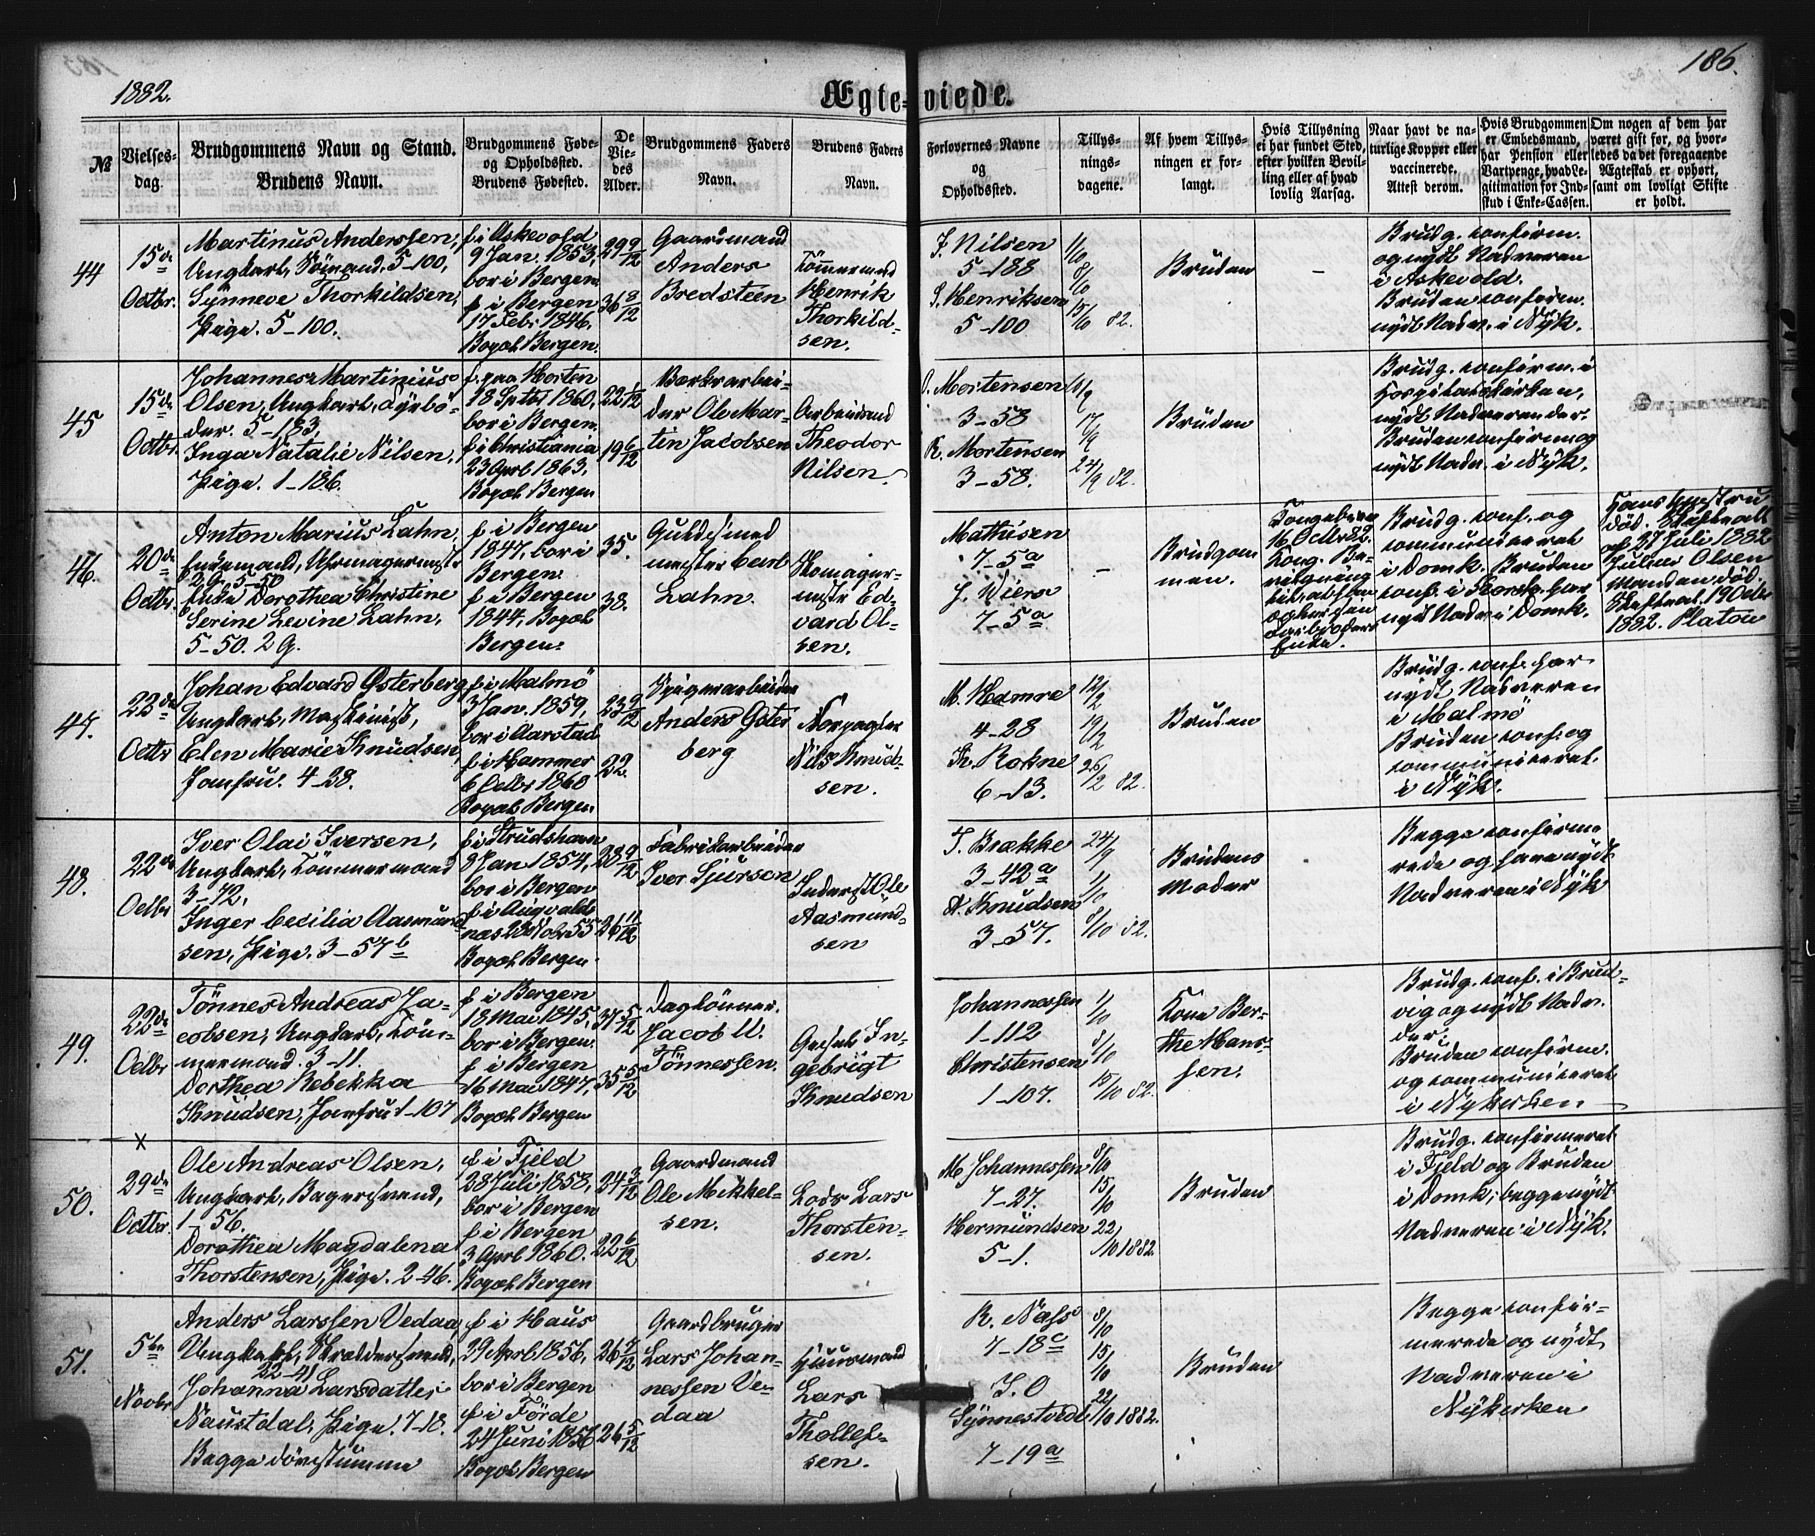 1882.
Ægte=viede.
186.
№
Vielses-dag.
Brudgommens Navn og Stand. Brudens Navn.
Brudgommens Føde- og Opholdssted. Brudens Fødested.
De Vie-des Alder.
Brudgommens Faders Navn.
Brudens Faders Navn.
Forlovernes Navne og Opholdssted.
Tillys-nings-dagene.
Af hvem Tillys-ningen er for-langt.
Hvis Tillysning ei har fundet Sted, efter hvilken Bevil-ling eller af hvad lovlig Aarsag.
Naar havt de na-turlige Kopper eller vaccinerede. Attest derom.
Hvis Brudgommen er Embedsmand, har Pension eller Vartpenge, hvad Le-gitimation for Ind-skud i Enke-Cassen.
Om nogen af dem har været gift før, og hvor-ledes da det foregaaende Ægteskab er ophørt, samt om lovligt Skifte er holdt.
44
15de Octbr.
Martinus Anderssen,
Ungkarl, Sömand, 5-100,
Synneve Thorkildsen,
Pige. 5-100.
f. i Askevold
9 Jan. 1853,
bor i Bergen
f. i Bergen
17 Febr 1846.
Bopæl Bergen.
29 9/12
36 8/12
Gaardmand
Anders
Bredsteen
Tömmermand
Henrik
Thorkild-
sen.
J. Nilsen
5-188
S. Henriksen
5-100
1/10
8/10
15/10 82.
Bruden
-
Brudg. confirm.
og nydt Nadveren
i Askevold.
Bruden confirm.
nydt Nadv. i Nyk.
45
15de Octbr.
Johannes Martinius
Olsen, Ungkarl, Fyrbö-
der. 5-183,
Inga Natalie Nilsen,
Pige. 1-186.
f. paa Horten
18 Septbr 1860,
bor i Bergen.
f. i Christiania
23 April 1863,
Bopæl Bergen
22 1/12
19 6/12
Værksarbei-
der Ole Mar-
tin Jacobsen
Arbeidsmand
Theodor
Nilsen.
O. Mortensen
3-58
R. Mortensen
3-58.
17/9
24/9 82.
Bruden
Brudg. confirm. i
Hospitalskirken,
nydt Nadveren der.
Bruden confirm. og
nydt Nadv. i Nyk.
46.
20de Octbr.
Anton Marius Lahn,
Enkemand, Uhrmagermstr
2g. 5-50
Enke Dorothea Christine
Serine Levine Lahn,
5-50. 2g.
f. i Bergen
1847, bor i
Bergen.
f. i Bergen
1844, Bopæl
Bergen.
35.
38.
Guldsmed
mester Carl
Lahn.
Skomager-
mstr Ed-
vard Ol-
sen.
Mathisen
7-5a
J. Wiers
7-5a
Brudgom
men.
-
Kongebrev
16 Octbr 82.
Kong. Be-
vilgning
til at
Enke.
Brudg. conf. og
communiceret
i Domk. Bruden
conf. i Korsk. har
nydt Nadv. i Domk.
Hans Hustru
död. Skifteatt.
af 27 Juli 1882
Julius Olsen
Manden död.
Skifteat. 19 Octbr
1882. Platou
47.
22de Octbr
Johan Edvard Østerberg
Ungkarl, Maskinist,
Elen Marie Knudsen,
Jomfru. 4-28.
f. i Malmö
3 Jan. 1859,
bor i Aarstad
f. i Hammer
6 Octbr 1860
Bopæl Bergen
23 9/12
22.
Spigerarbeider
Anders Øster
berg
Nils Knud-
sen.
M. Hamre
4-28
K. Rokne
6-13.
12/2
19/2
26/2 82.
Bruden
Brudg. conf. har
nydt Nadveren
i Malmö
Bruden conf. og
communiceret.
i Nyk.
48.
22de Octbr
Iver Olai Iversen,
Ungkarl, Tömmermand
3-72,
Inger Cecilia Aasmund
sen, Pige. 3-57b
f. i Strudshavn
9 Jan 1854,
bor i Bergen
f. i Augvalds
næs
Bopæl Bergen.
28 9/12
26 11/12
Fabrikarbeider
Iver Sjursen
Ole
Aasmund-
sen
T. Brække
3-42a
A. Knudsen
3-57.
24/9
1/10
8/10 82.
Brudens
Moder
Begge confirme
rede og have nydt
Nadveren i Nyk
49.
22de Octbr
Tönnes Andreas Ja-
cobsen, Ungkarl, Töm-
mermand. 3-11.
Dorthea Rebekka
Knudsen, Jomfru 1-107
f. i Bergen
18 Mai 1845,
bor i Bergen.
f. i Bergen
16 Mai 1847,
Bopæl Bergen
37 5/12
35 5/12
Daglönner.
Jacob U.
Tönnessen.
In-
gebrigt
Knudsen
Johannessen
1-112
Christensen
1-107.
1/10
8/10
15/10 82.
Kone Ber-
the Hans-
sen.
Brudg. conf. i Brud-
vig og nydt Nadv.
der.
Bruden confirm.
og communiceret
i Nykirken
x
50.
29de Octbr.
Ole Andreas Olsen,
Ungkarl, Bagersvend,
1-56.
Dorothea Magdalena
Thorstensen, Pige. 2-46.
f. i Fjeld
28 Juli 1858,
bor i Bergen
f. i Bergen
3 April 1860.
Bopæl Bergen
24 3/12
22 6/12
Gaardmand
Ole Mikkel-
sen.
Lods Lars
Thorsten-
sen.
M. Johannessen
7-27.
Hermundsen
5-1.
8/10
15/10
22/10 1882.
Bruden
Brudg. confirmeret
i Fjeld og Bruden
i Domk; begge nydt
Nadveren i Nyk.
51.
5te Novbr
Anders Larssen Vedaa,
Ungkarl, Skræddersvend,
22-41
Johanna Larsdatter
Naustdal, Pige. 7-18.
Begge dövstumme
f. i Haus
29 April 1856,
bor i Bergen
f. i Förde
24 Juni 1856
Bopæl Bergen
26 7/12
26 5/12
Gaardbruger
Lars Johan-
nessen Ve-
daa
Huusmand
Lars
Thollef-
sen.
R. Næss
7-18c
J. O
Synnestvedt
7-19a
8/10
15/10
22/10 1882.
Bruden
Begge confir-
merede og nydt
Nadveren i
Nykirken